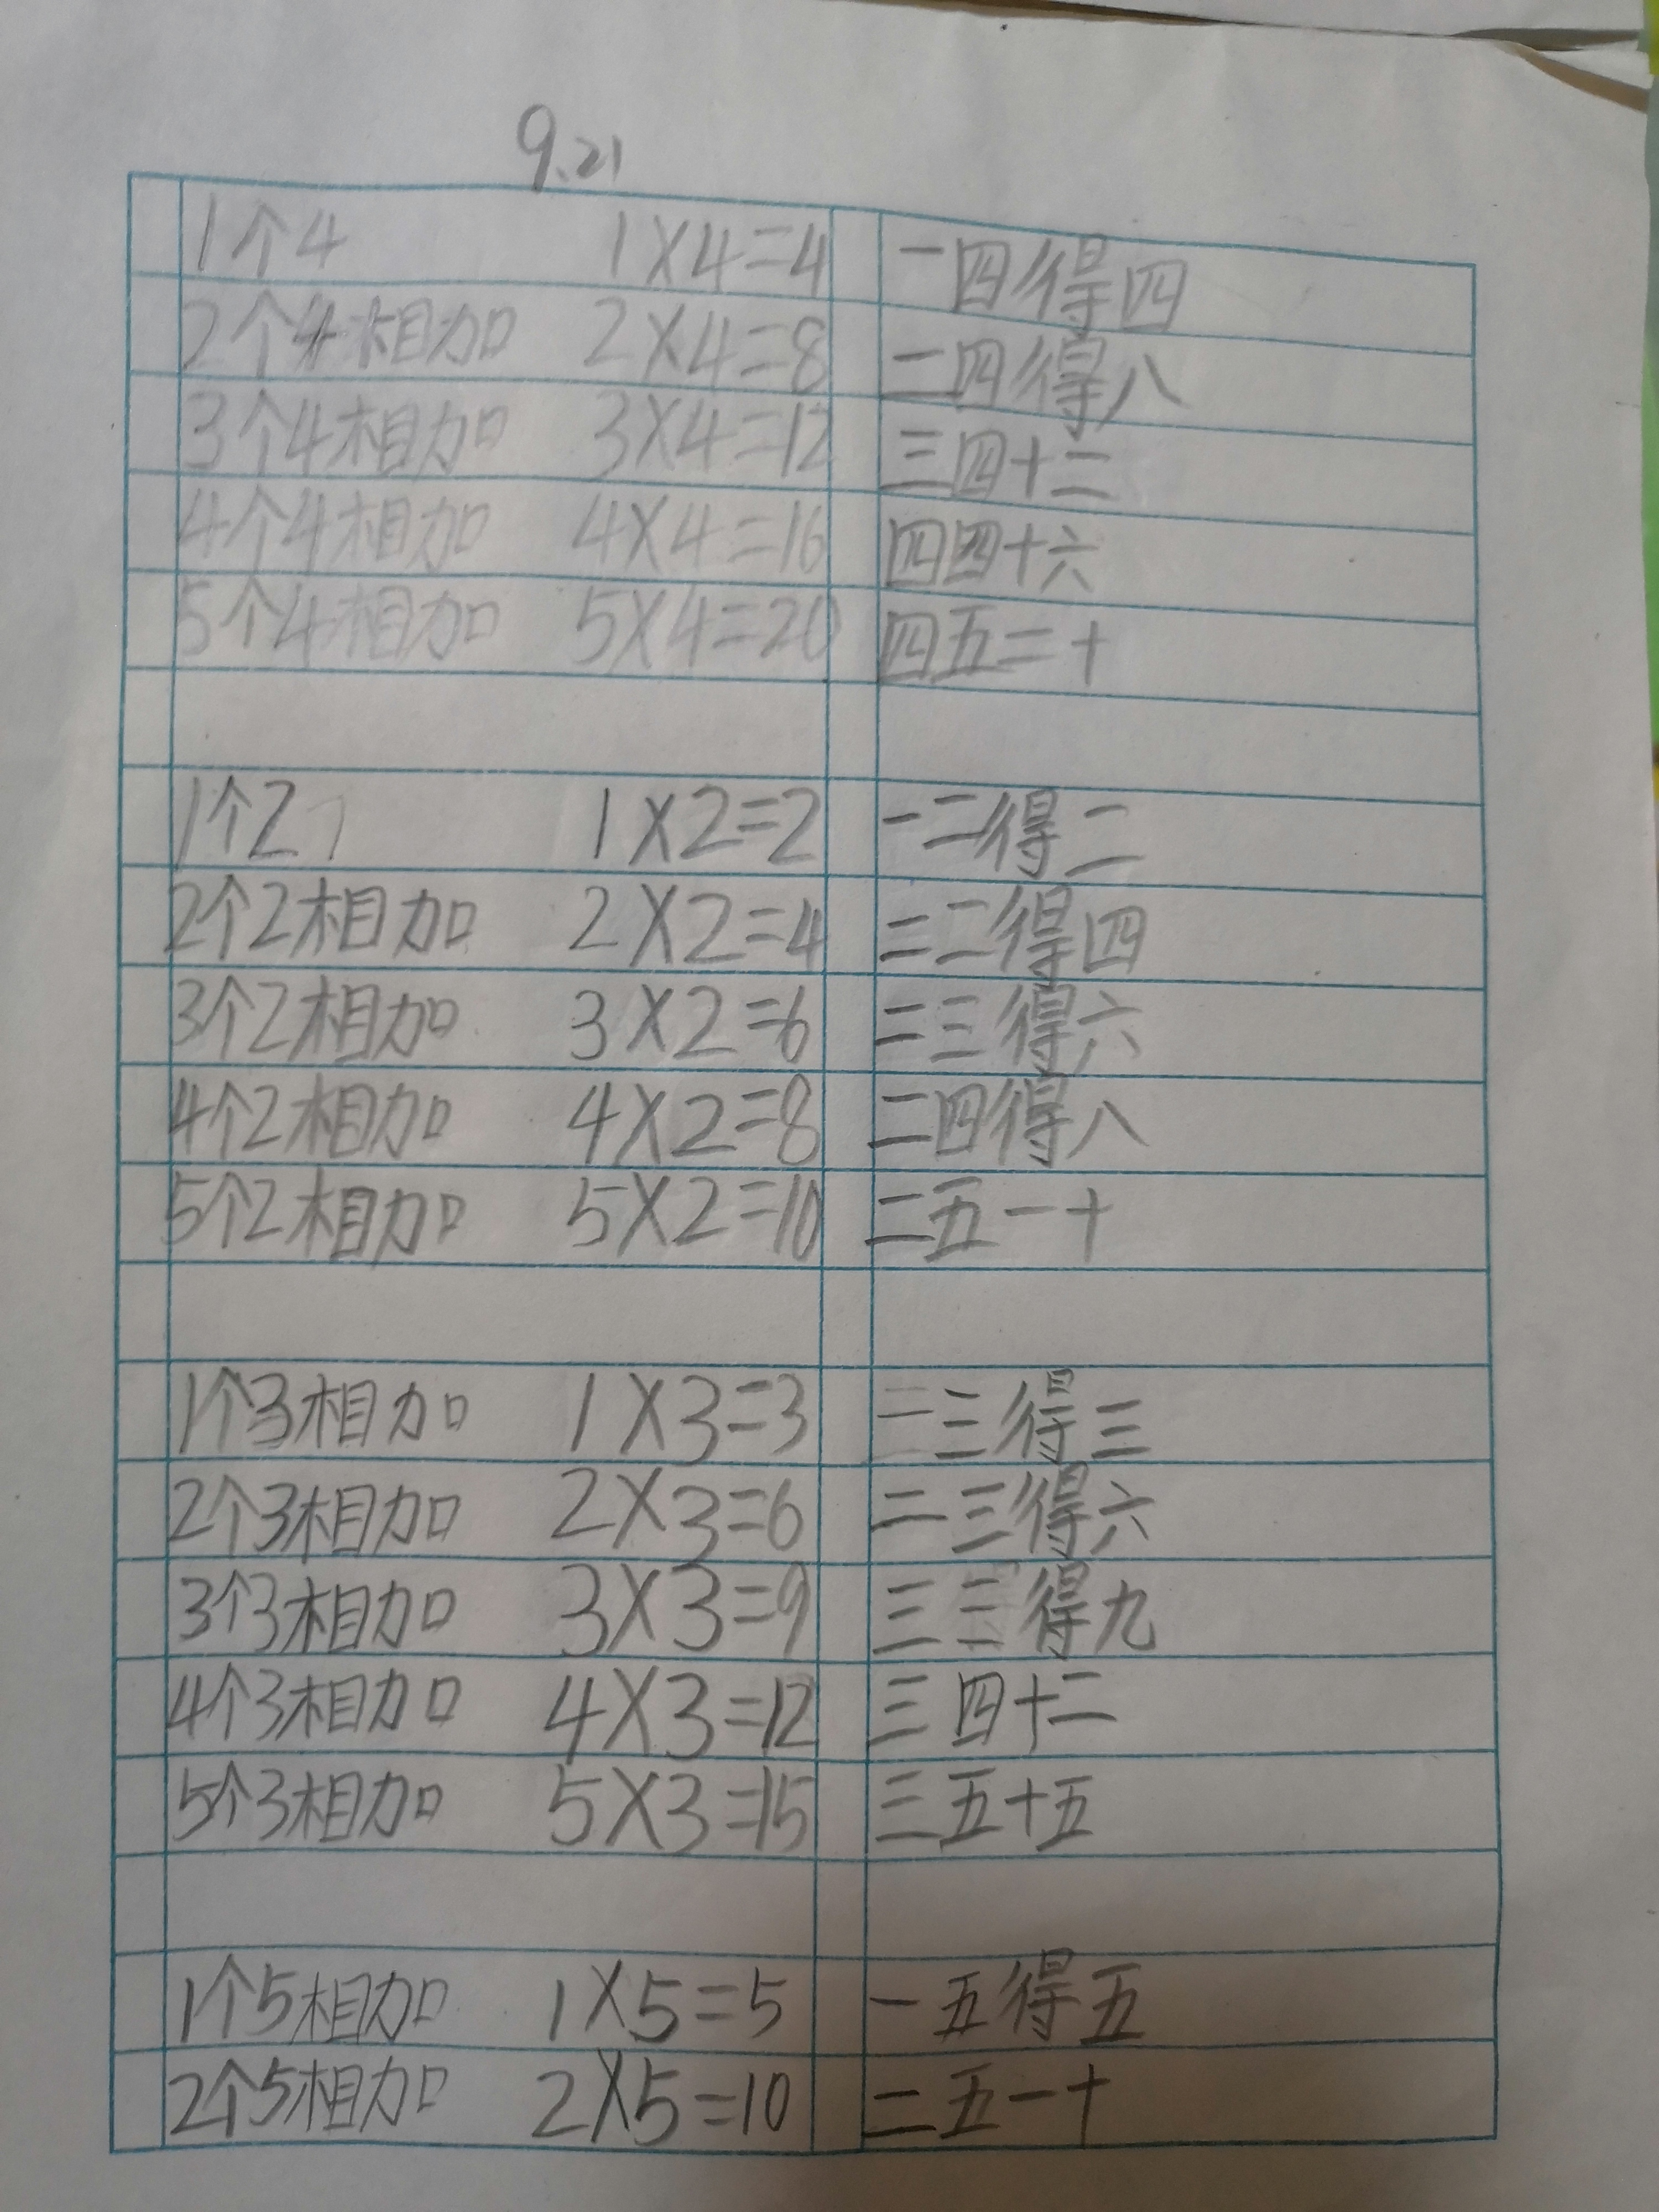 9.21
1个4 1×4=4 一四得四
2个4相加 2×4=8 二四得八
3个4相加 3×4=12 三四十二
4个4相加 4×4=16 四四十六
5个4相加 5×4=20 四五二十
1个2 1×2=2 一二得二
2个2相加 2×2=4 二二得四
3个2相加 3×2=6 二三得六
4个2相加 4×2=8 二四得八
5个2相加 5×2=10 二五一十
1个3相加 1×3=3 一三得三
2个3相加 2×3=6 二三得六
3个3相加 3×3=9 三三得九
4个3相加 4×3=12 三四十二
5个3相加 5×3=15 三五十五
1个5相加 1×5=5 一五得五
2个5相加 2×5=10 二五一十